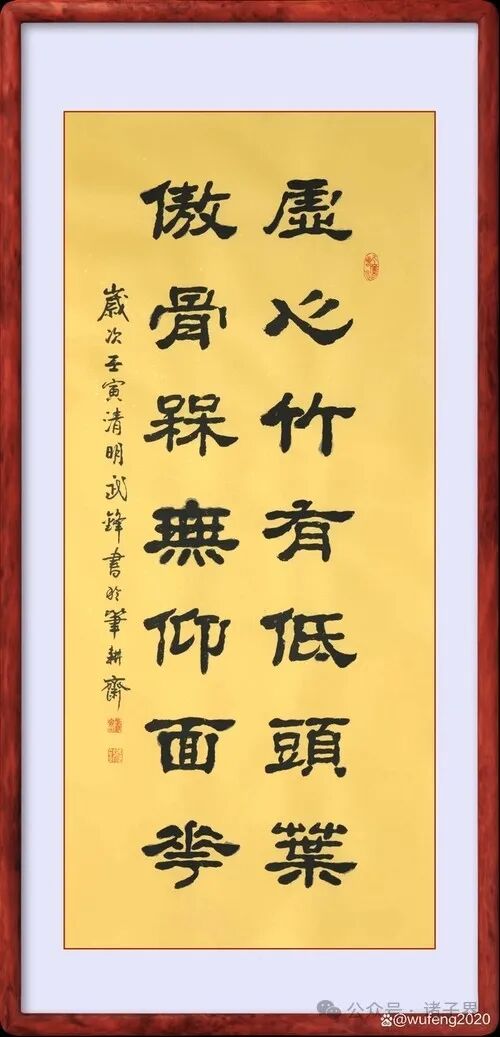 虛心竹有低頭葉
傲骨槑無仰面花
歲次壬寅清明武鋒書於筆耕齋
公众号 · 诸子界
@wufeng2020